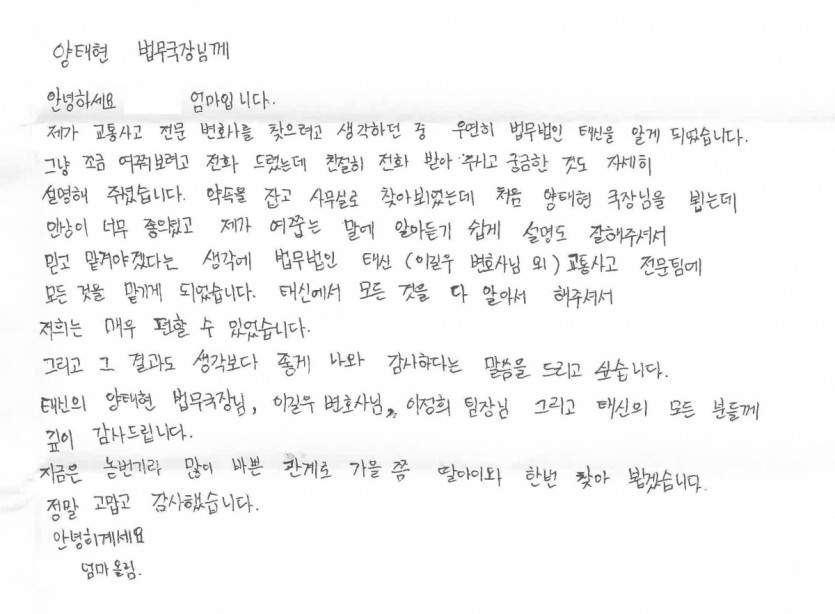 양태현 법무국장님께
안녕하세요 엄마입니다.
제가 교통사고 전문 변호사를 찾으려고 생각하던 중 우연히 법무법인 태신을 알게 되었습니다.
그냥 조금 여쭤보려고 전화 드렸는데 친절히 전화 받아 주시고 궁금한 것도 자세히
설명해 주셨습니다. 약속을 잡고 사무실로 찾아뵈었는데 처음 양태현 국장님을 뵙는데
인상이 너무 좋으셨고 제가 여쭙는 말에 알아듣기 쉽게 설명도 잘해주셔서
믿고 맡겨야겠다는 생각에 법무법인 태신 (이길우 변호사님 외) 교통사고 전문팀에
모든 것을 맡기게 되었습니다. 태신에서 모든 것을 다 알아서 해주셔서
저희는 매우 편할 수 있었습니다.
그리고 그 결과도 생각보다 좋게 나와 감사하다는 말씀을 드리고 싶습니다.
태신의 양태현 법무국장님, 이길우 변호사님, 이정희 팀장님 그리고 태신의 모든 분들께
깊이 감사드립니다.
지금은 농번기라 많이 바쁜 관계로 가을 쯤 딸아이와 한번 찾아 뵙겠습니다.
정말 고맙고 감사했습니다.
안녕히계세요
엄마 올림.